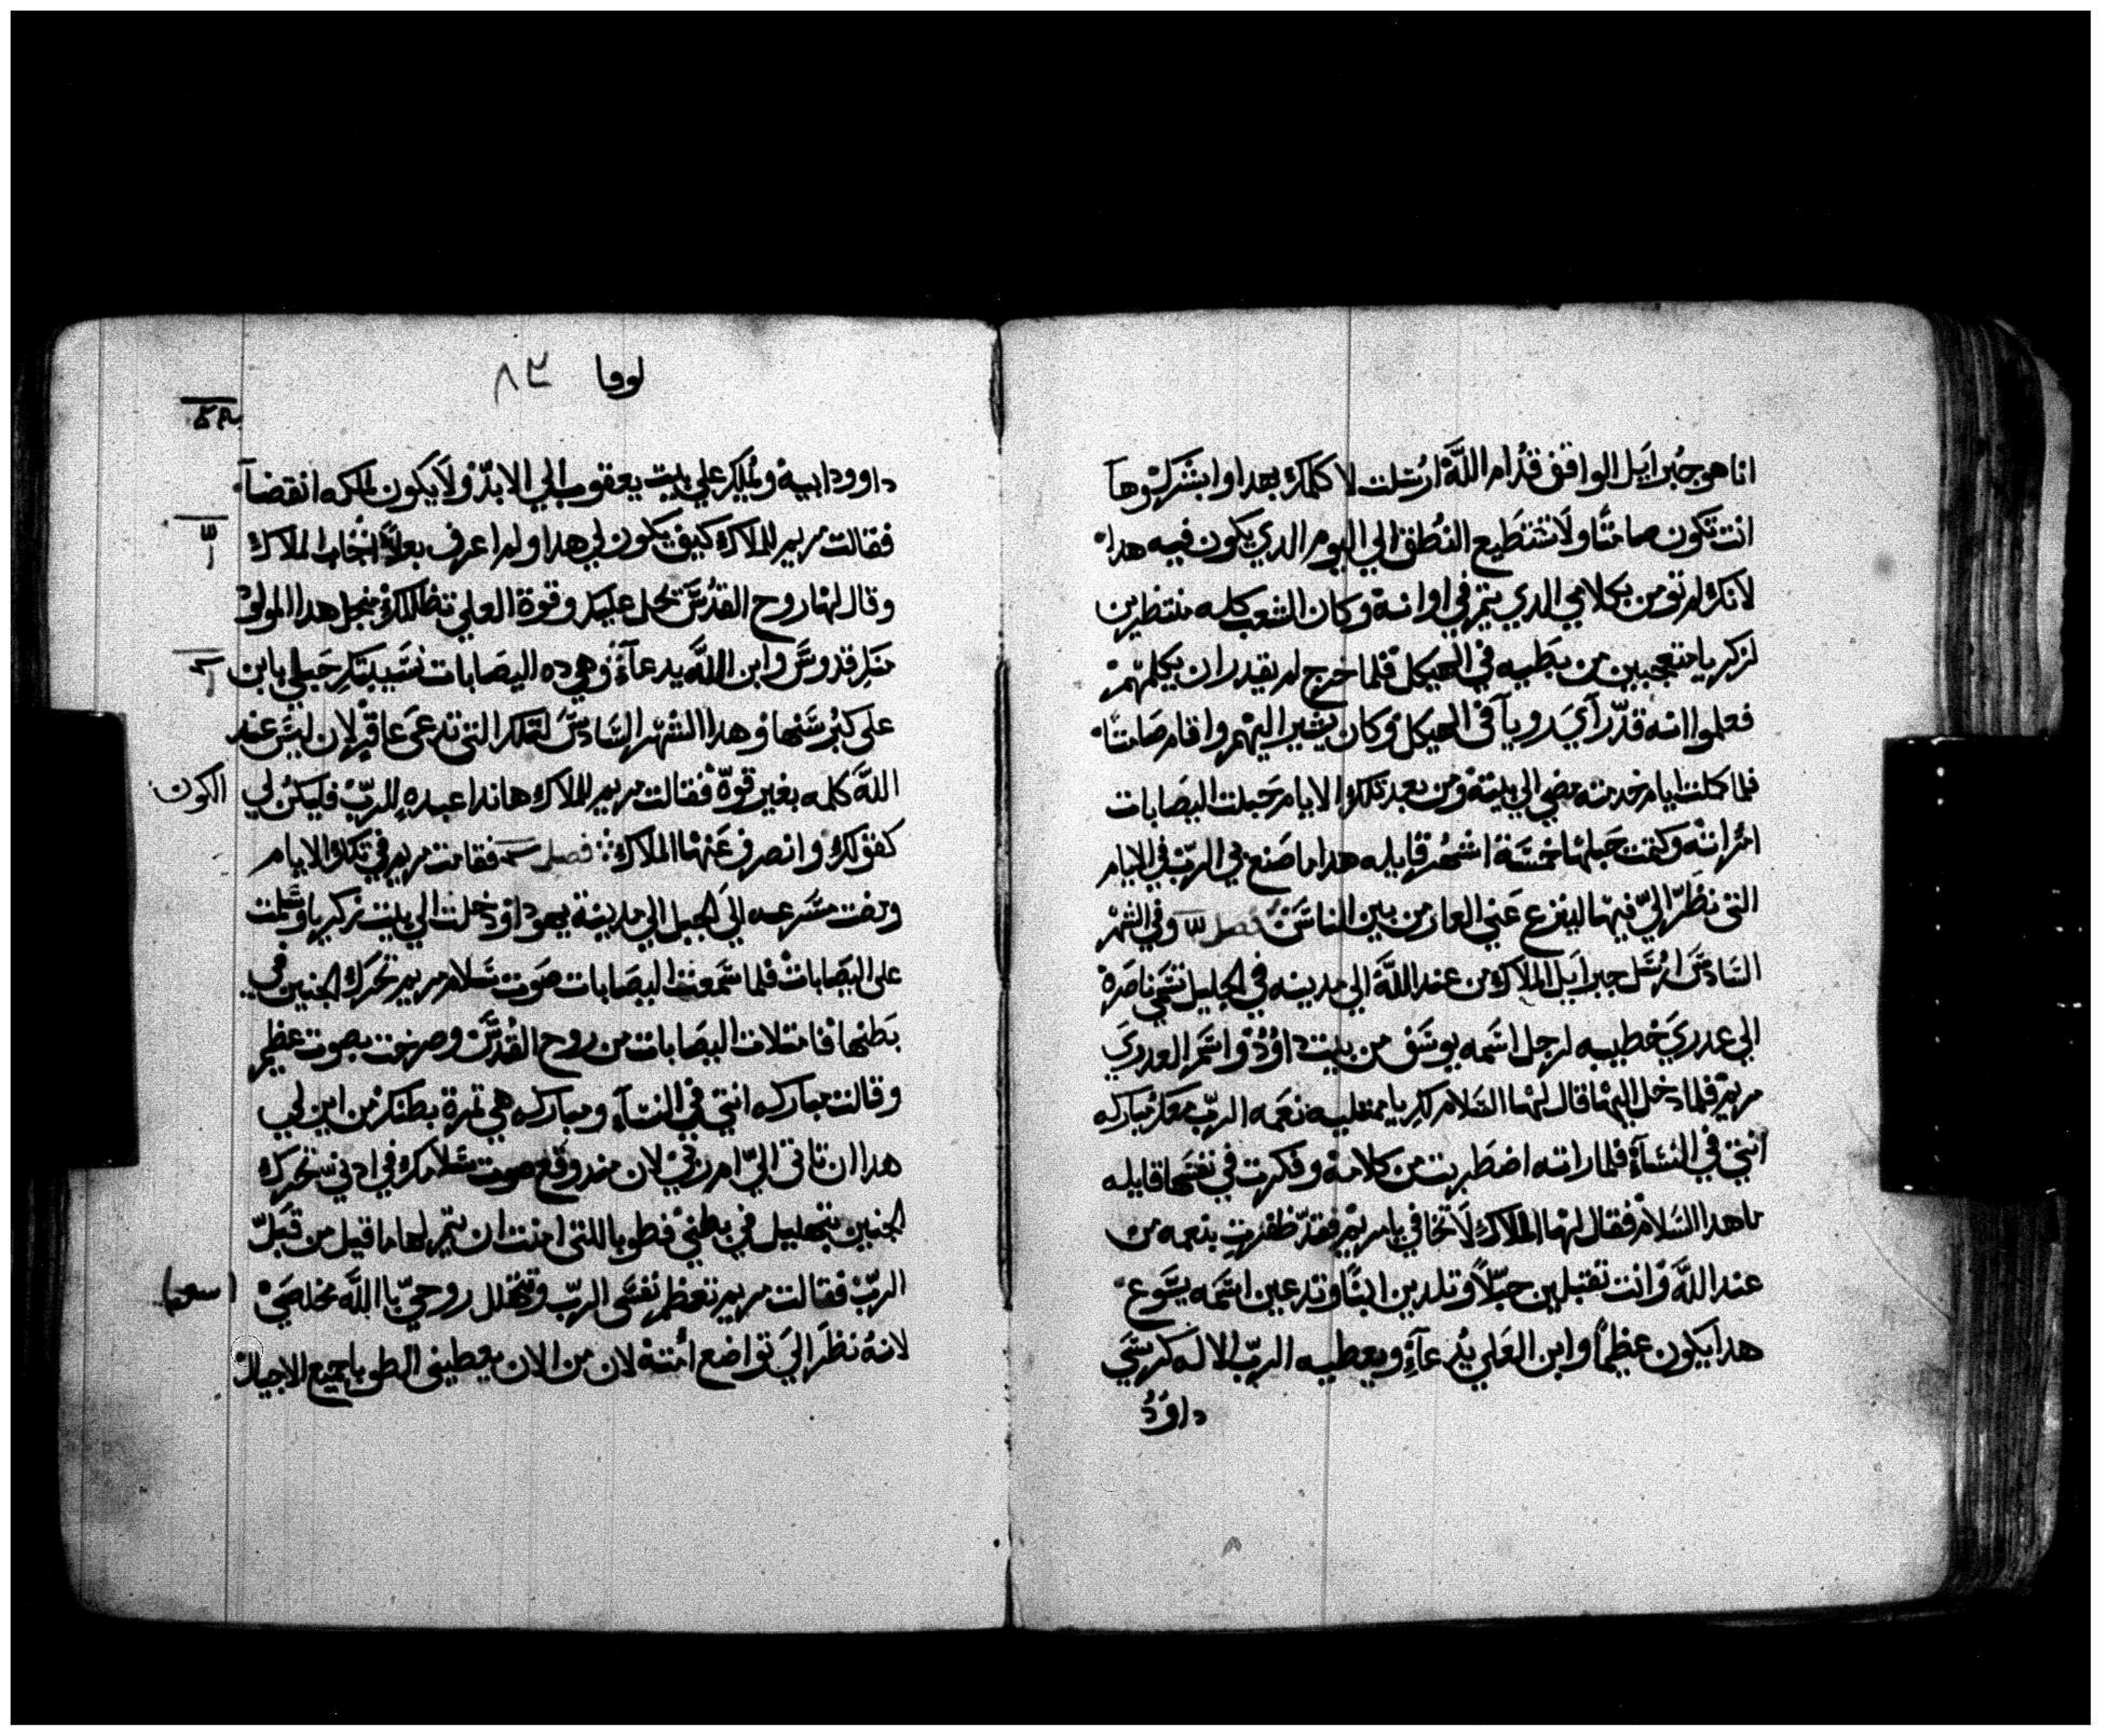 انا هو جبراييل الواقف قدام الله ارسلت لاكلمك بهدا وابشرك وها
انت تكون صامتا ولا تستطيع النطق الي اليوم الدي يكون فيه هدا
لانك لم تومن بكلامي الدي يتم في اوانه وكان الشعب كله منتظرين
لزكريا متعجبين من بطيه في الهيكل فلما خرج لم يقدر ان يكلمهم
فعلموا انه قد راي رويا في الهيكل وكان يشير اليهم واقام صامتا
فلما كملت ايام خدمته مضي الي بيته ومن بعد تلك الايام حبلت اليصابات
امراته وكتمت حبلها خمسة اشهر قايله هدا ما صنع بي الرب في الايام
التي نظر الي فيها لينزع عني العار من بين الناس فصل وفي الشهر
السادس ارسل جبراييل الملاك من عند الله الي مدينه في الجليل تسمي ناصرة
الي عدري خطيبه لرجل اسمه يوسف من بيت داود واسم العدري
مريم فلما دخل اليها قال لها السلام لكِ يا ممتليه نعمه الرب معك مباركه
انتي في النساء فلما راته اضطربت من كلامه وفكرت في نفسها قايله
ما هدا السلام فقال لها الملاك لا تخافي يا مريم فقد ظفرت بنعمه من
عند الله وانت تقبلين حبلاً وتلدين ابنًا وتدعين اسمه يسوع
هدا يكون عظيماً وابن العلي يدعاء ويعطيه الرب الاله كرسي
داود
لوقا ٨٣
داوود ابيه ويملك علي بيت يعقوب الي الابد ولا يكون لملكه انقضا
فقالت مريم للملاك كيف يكون لي هدا ولم اعرف بعلاً اجاب الملاك
وقال لها روح القدس تحل عليك وقوة العلي تظللك منجل هدا المولود
منك قدوس وابن الله يدعاء وهي ده اليصابات نسيبتك حبلي بابن
على كبر سنها وهدا الشهر السادس لتلك التي تدعى عاقر لان ليس عند
الله كلمه بغير قوة فقالت مريم للملاك هاندا عبده للرب فليكن لي
الكون
كقولك وانصرف عنها الملاك فصل فقامت مريم في تلك الايام
ومضت مسرعه الى الجبل الي مدينة يهودا ودخلت الي بيت زكريا وسلمت
على اليصابات فلما سمعت اليصابات صوت سلام مريم تحرك الجنين في
بطنها فامتلات اليصابات من روح القدس وصرخت بصوت عظيم
وقالت مباركه انتي في النساء ومباركه هي ثمرة بطنك من اين لي
هدا ان تاتي الي ام ربي لان مند وقع صوت سلامك في ادني تحرك
الجنين بتهليل في بطني فطوبا للتي امنت ان يتم لها ما قيل من قبل
الرب فقالت مريم تعظم نفسى الرب وتتهلل روحي باالله مخلصي
لانه نظر الي تواضع امته لان من الان يعطيني الطوبا جميع الاجيال